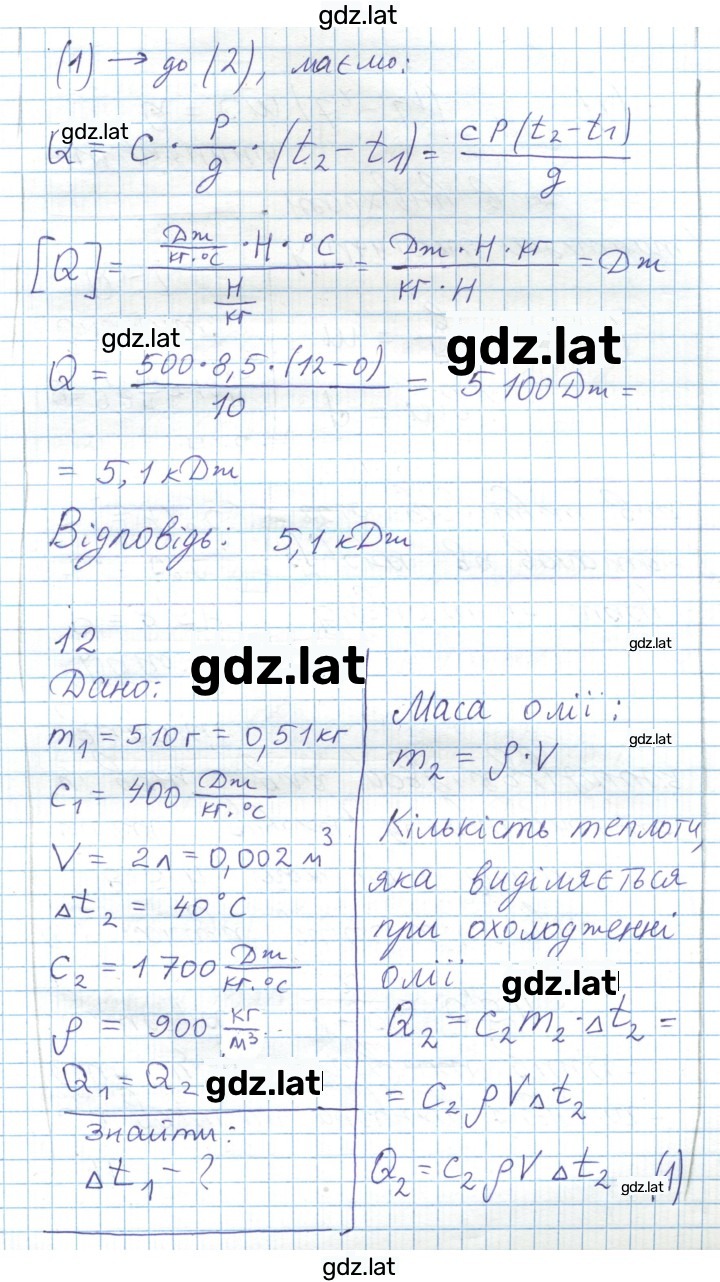 gdz.lat
(1) → до (2), маємо:
gdz.lat
Q = c · P/g · (t₂ − t₁) = cP(t₂ − t₁)/g
[Q] = (Дж/(кг·°C) · Н · °C)/(Н/кг) = (Дж · Н · кг)/(кг · Н) = Дж
gdz.lat
gdz.lat
Q = 500·8,5·(12−0)/10 = 5 100 Дж =
= 5,1 кДж
Відповідь: 5,1 кДж
12
gdz.lat
gdz.lat
Дано:
m₁ = 510 г = 0,51 кг
c₁ = 400 Дж/(кг·°C)
V = 2 л = 0,002 м³
Δt₂ = 40 °C
c₂ = 1 700 Дж/(кг·°C)
ρ = 900 кг/м³
Q₁ = Q₂
gdz.lat
Знайти:
Δt₁ − ?
Маса олії:
gdz.lat
m₂ = ρ·V
Кількість теплоти,
яка виділяється
при охолодженні
олії
gdz.lat
Q₂ = c₂m₂·Δt₂ =
= c₂ρVΔt₂
Q₂ = c₂ρVΔt₂ (1)
gdz.lat
gdz.lat